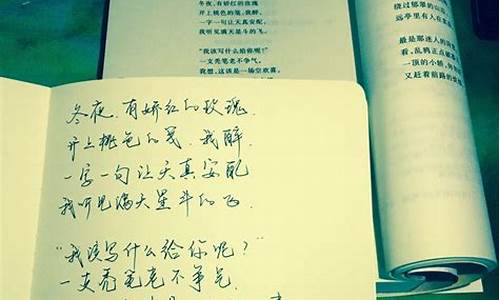 冬夜,有娇红的玫瑰
开上桃色的笺,我醉,
一字一句让天真安配,
我听见满天星斗的飞。
“我该写什么给你呢?”
一支秃笔老不争气。
我想,这该是一场空欢喜,
绕过郁翠的山
远亭里有人在
最是那迷人的
看,乱鸦正点
一顶的小轿,
又赶着前路的
冬夜,有娇红的玫瑰,
开上桃色的笺,我醉,
一字一句让天真安配
我听见满天星斗的飞.
“我该写什么给你呢?”
一支秃笔老不争气.